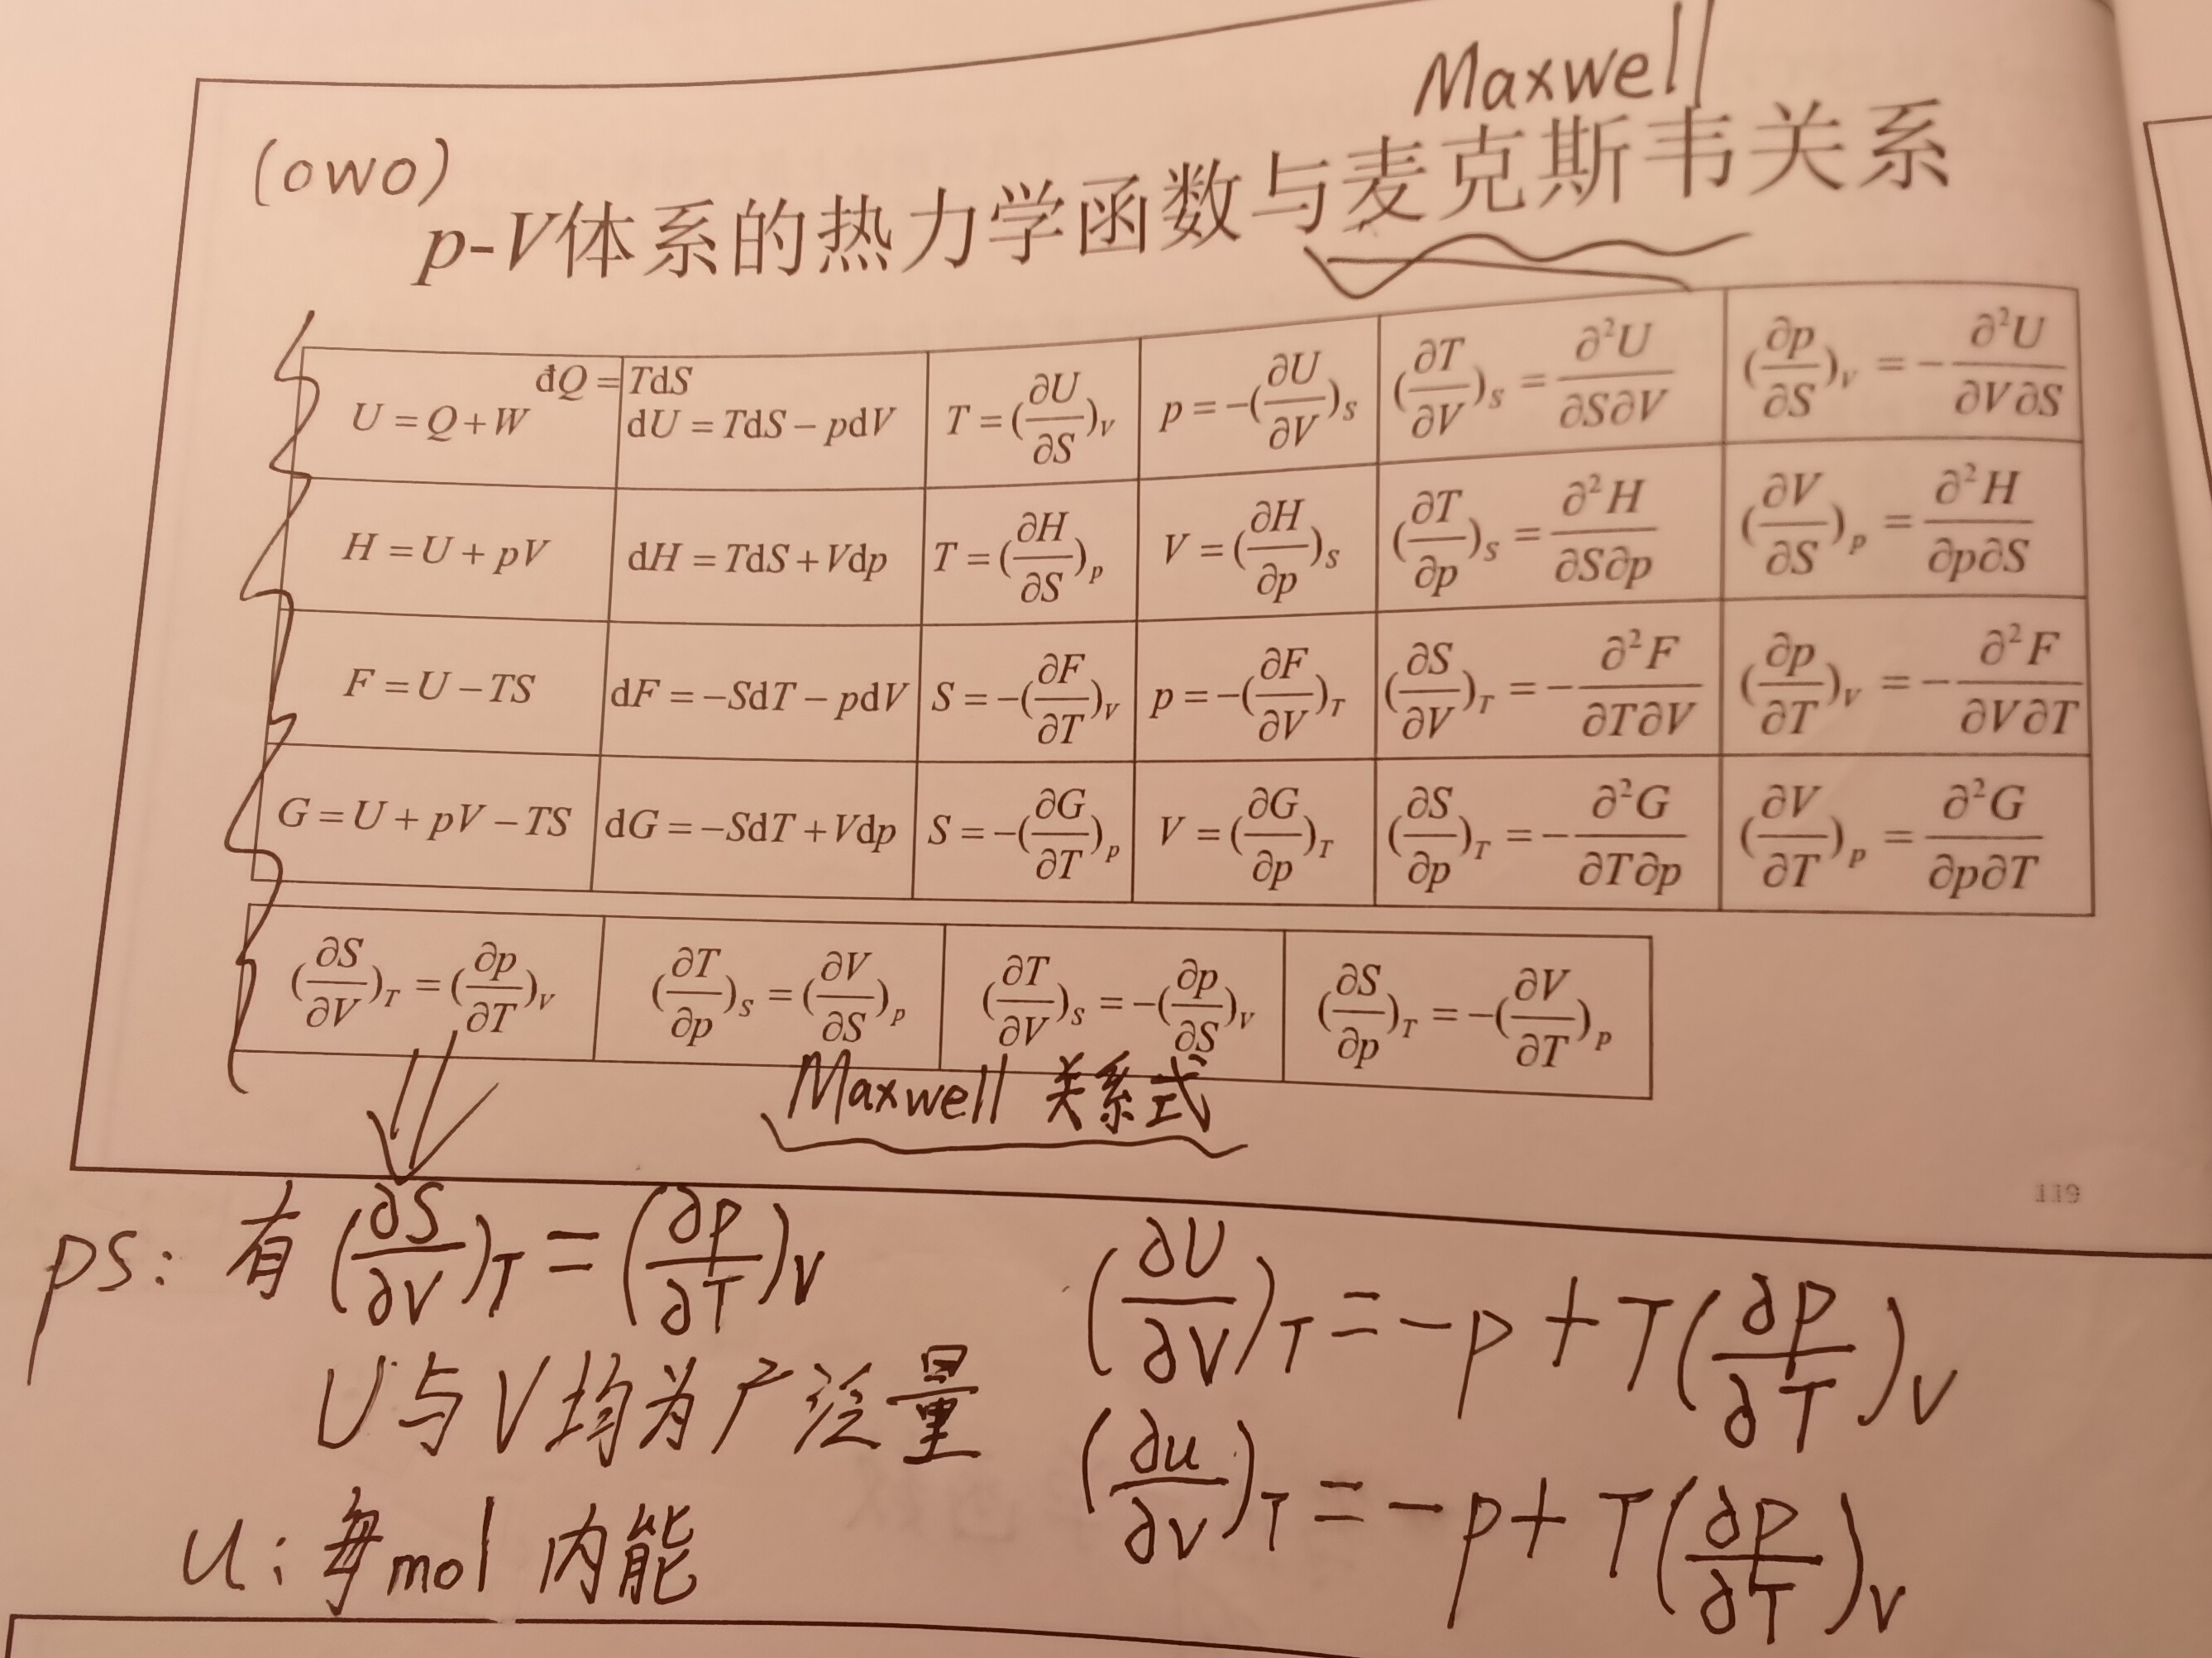 Maxwell
(owo)
p-V体系的热力学函数与麦克斯韦关系
đQ = TdS
U = Q + W dU = TdS − pdV T = (∂U/∂S)_V p = −(∂U/∂V)_S (∂T/∂V)_S = ∂²U/∂S∂V (∂p/∂S)_V = −∂²U/∂V∂S
H = U + pV dH = TdS + Vdp T = (∂H/∂S)_p V = (∂H/∂p)_S (∂T/∂p)_S = ∂²H/∂S∂p (∂V/∂S)_p = ∂²H/∂p∂S
F = U − TS dF = −SdT − pdV S = −(∂F/∂T)_V p = −(∂F/∂V)_T (∂S/∂V)_T = −∂²F/∂T∂V (∂p/∂T)_V = −∂²F/∂V∂T
G = U + pV − TS dG = −SdT + Vdp S = −(∂G/∂T)_p V = (∂G/∂p)_T (∂S/∂p)_T = −∂²G/∂T∂p (∂V/∂T)_p = ∂²G/∂p∂T
(∂S/∂V)_T = (∂p/∂T)_V (∂T/∂p)_S = (∂V/∂S)_p (∂T/∂V)_S = −(∂p/∂S)_V (∂S/∂p)_T = −(∂V/∂T)_p
Maxwell 关系式
119
ps: 有 (∂S/∂V)_T = (∂p/∂T)_V
(∂U/∂V)_T = −p + T(∂p/∂T)_V
U与V均为广泛量
(∂u/∂v)_T = −p + T(∂p/∂T)_V
u: 每mol 内能